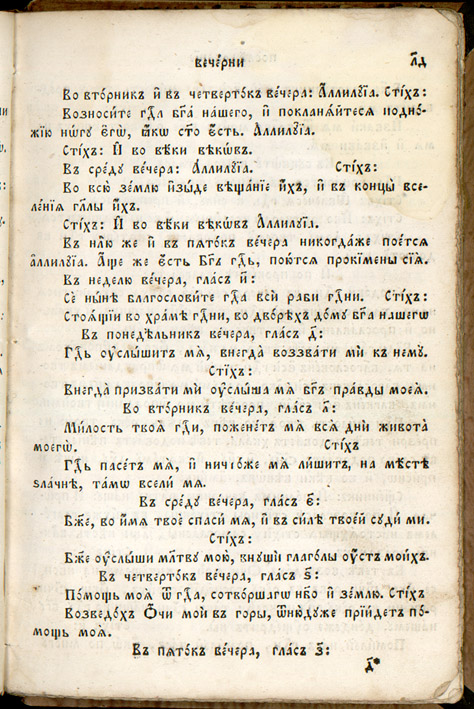 вече́рни л҃д
Во вто́рникъ и҆ въ четверто́къ ве́чера: А҆ллилꙋ́їа. Сті́хъ:
Возноси́те гдⷭ҇а бг҃а на́шего, и҆ покланѧ́йтесѧ подно́-
жїю но́гꙋ є҆гѡ̀, ꙗ҆́кѡ ст҃о є҆́сть. А҆ллилꙋ́їа.
Сті́хъ: И҆ во вѣ́ки вѣкѡ́въ.
Въ сре́дꙋ ве́чера: А҆ллилꙋ́їа. Сті́хъ:
Во всю̀ зе́млю и҆зы́де вѣща́нїе и҆́хъ, и҆ въ концы̀ все-
ле́нїѧ гл҃ы и҆́хъ.
Сті́хъ: И҆ во вѣ́ки вѣкѡ́въ А҆ллилꙋ́їа.
Въ нлⷣю же и҆ въ пѧто́къ ве́чера никогда́же пое́тсѧ
а҆ллилꙋ́їа. А҆́ще же є҆́сть Бг҃ъ гдⷭ҇ь, пою́тсѧ прокі́мены сїѧ̑.
Въ неде́лю ве́чера, гла́съ и҃:
Се́ ны́нѣ благослови́те гдⷭ҇а всѝ рабѝ гдⷭ҇ни. Сті́хъ:
Стоѧ́щїи во хра́мѣ гдⷭ҇ни, во дво́рѣхъ до́мꙋ бг҃а на́шегѡ
Въ понедѣ́льникъ ве́чера, гла́съ д҃:
Гдⷭ҇ь оу҆слы́шитъ мѧ̀, внегда̀ воззва́ти мѝ къ немꙋ̀.
Сті́хъ:
Внегда̀ призва́ти мѝ оу҆слы́ша мѧ̀ бг҃ъ пра́вды моеѧ̀.
Во вто́рникъ ве́чера, гла́съ а҃:
Ми́лость твоѧ̀ гдⷭ҇и, пожене́тъ мѧ̀ всѧ̀ дни̑ живота̀
моегѡ̀. Сті́хъ
Гдⷭ҇ь пасе́тъ мѧ̀, и҆ ничто́же мѧ̀ лиши́тъ, на мѣ́стѣ
ѕла́чнѣ, та́мѡ всели́ мѧ.
Въ сре́дꙋ ве́чера, гла́съ є҃:
Бж҃е, во и҆́мѧ твоѐ спаси́ мѧ, и҆ въ си́лѣ твое́й сꙋди́ ми.
Сті́хъ:
Бж҃е оу҆слы́ши мл҃твꙋ мою̀, внꙋшѝ глаго́лы оу҆́стъ мои́хъ.
Въ четверто́къ ве́чера, гла́съ ѕ҃:
По́мощь моѧ̀ ѿ гдⷭ҇а, сотво́ршагѡ нб҃о и҆ зе́млю. Сті́хъ
Возведо́хъ Ѻ҆́чи моѝ въ го́ры, ѿню́дꙋже прїи́детъ по́-
мощь моѧ̀.
Въ пѧто́къ ве́чера, гла́съ з҃:
д҃*